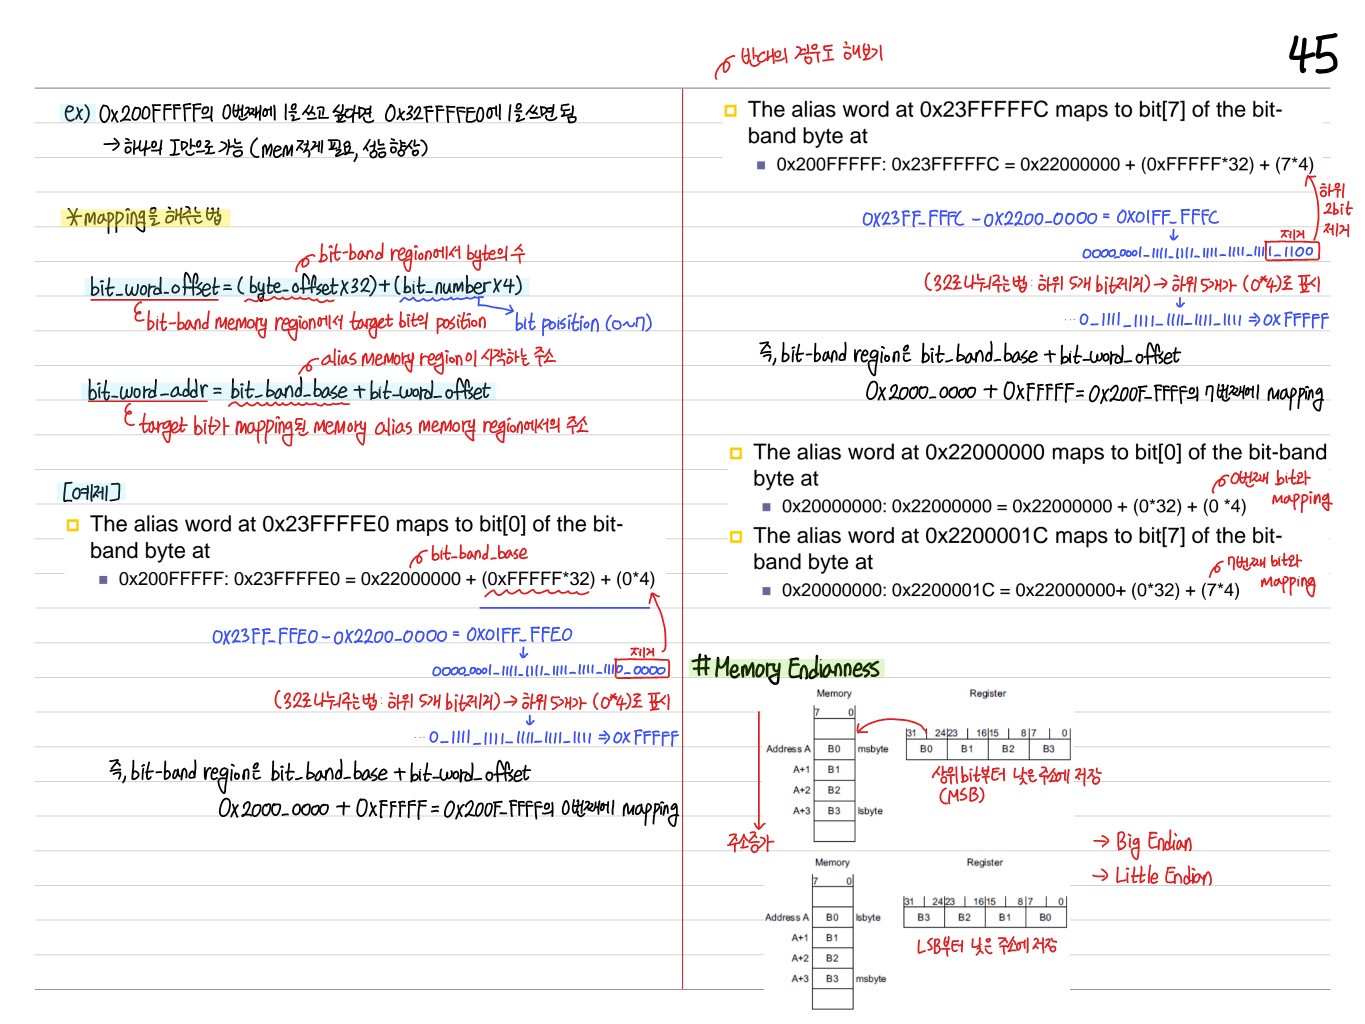 45
ex) 0x200FFFFF의 0번째에 1을 쓰고 싶다면 0x32FFFFE0에 1을 쓰면 됨
→ 하나의 I만으로 가능 (mem 적게 필요, 성능 향상)
*mapping을 해주는 법
bit-band region에서 byte의 수
bit_word_offset = (byte_offset x 32) + (bit_number x 4)
bit-band memory region에서 target bit의 position
bit poisition (0~7)
alias memory region이 시작하는 주소
bit_word_addr = bit_band_base + bit_word_offset
target bit가 mapping된 memory alias memory region에서의 주소
[예제]
The alias word at 0x23FFFFE0 maps to bit[0] of the bit-
band byte at
bit_band_base
0x200FFFFF: 0x23FFFFE0 = 0x22000000 + (0xFFFFF*32) + (0*4)
0X23FF_FFE0 - 0X2200_0000 = 0X01FF_FFE0
제거
0000_0001_1111_1111_1111_1111_1110_0000
(32로 나눠주는 법 : 하위 5개 bit제거) → 하위 5개가 (0*4)로 표시
... 0_1111_1111_1111_1111_1111 ⇒ 0X FFFFF
즉, bit-band region은 bit_band_base + bit_word_offset
0X2000_0000 + 0XFFFFF = 0X200F_FFFF의 0번째에 mapping
반대의 경우도 해보기
The alias word at 0x23FFFFFC maps to bit[7] of the bit-
band byte at
0x200FFFFF: 0x23FFFFFC = 0x22000000 + (0xFFFFF*32) + (7*4)
하위
2bit
제거
0X23FF_FFFC - 0X2200_0000 = 0X01FF_FFFC
제거
0000_0001_1111_1111_1111_1111_1111_1100
(32로 나눠주는 법 : 하위 5개 bit제거) → 하위 5개가 (0*4)로 표시
... 0_1111_1111_1111_1111_1111 ⇒ 0X FFFFF
즉, bit-band region은 bit_band_base + bit_word_offset
0X2000_0000 + 0XFFFFF = 0X200F_FFFF의 7번째에 mapping
The alias word at 0x22000000 maps to bit[0] of the bit-band
byte at
0번째 bit와
mapping
0x20000000: 0x22000000 = 0x22000000 + (0*32) + (0 *4)
The alias word at 0x2200001C maps to bit[7] of the bit-
band byte at
7번째 bit와
mapping
0x20000000: 0x2200001C = 0x22000000+ (0*32) + (7*4)
# Memory Endianness
Memory Register
7 0
31 24 23 16 15 8 7 0
Address A B0 msbyte B0 B1 B2 B3
A+1 B1
A+2 B2
A+3 B3 lsbyte
상위 bit부터 낮은 주소에 저장
(MSB)
주소증가
→ Big Endian
→ Little Endian
Memory Register
7 0
31 24 23 16 15 8 7 0
Address A B0 lsbyte B3 B2 B1 B0
A+1 B1
A+2 B2
A+3 B3 msbyte
LSB부터 낮은 주소에 저장